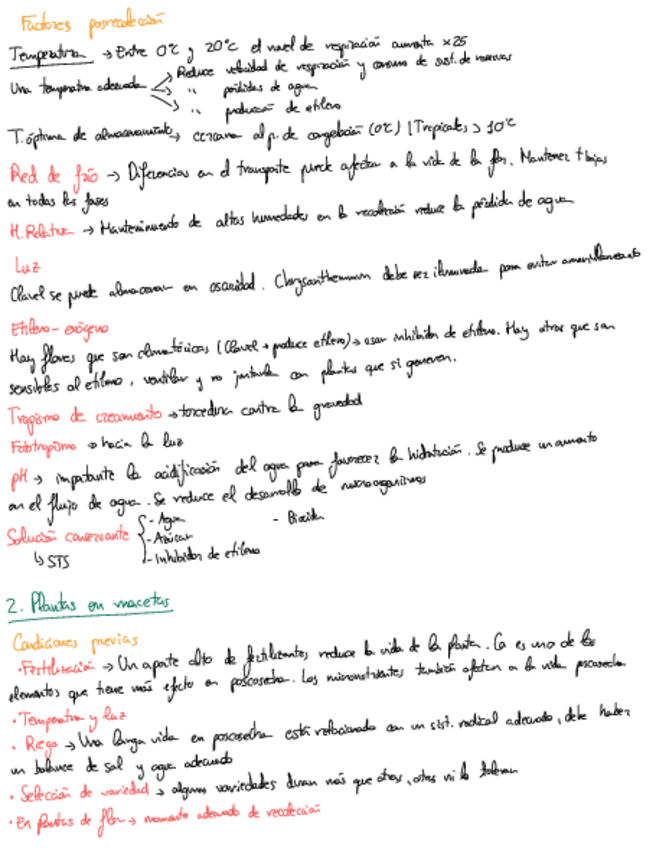 Factores posrecolección
Temperatura → Entre 0℃ y 20℃ el nivel de respiración aumenta x25
Una temperatura adecuada → Reduce velocidad de respiración y consumo de sist. de reservas
→ " pérdidas de agua
→ " producción de etileno
T. óptima de almacenamiento → cercana al p. de congelación (0℃) | Tropicales > 10℃
Red de frío → Diferencias en el transporte puede afectar a la vida de la flor. Mantener t bajas
en todas las fases
H. Relativa → Mantenimiento de altas humedades en la recolección reduce la pérdida de agua
Luz
Clavel se puede almacenar en oscuridad. Chrysanthemum debe ser iluminada para evitar amarilleamiento
Etileno - exógeno
Hay flores que son climatéricas (Clavel → produce etileno) → usar inhibidor de etileno. Hay otras que son
sensibles al etileno, ventilar y no juntarla con plantas que si generen.
Tropismo de crecimiento → torcedura contra la gravedad
Fototropismo → hacia la luz
pH → importante la acidificación del agua para favorecer la hidratación. Se produce un aumento
en el flujo de agua. Se reduce el desarrollo de microorganismos
Solución conservante { - Agua - Biocida
- Azúcar
- Inhibidor de etileno
↳ STS
2. Plantas en macetas
Condiciones previas
· Fertilización → Un aporte alto de fertilizantes reduce la vida de la planta. Ca es uno de los
elementos que tiene más efecto en poscosecha. Los micronutrientes también afectan a la vida poscosecha
· Temperatura y luz
· Riego → Una larga vida en poscosecha está relacionado con un sist. radical adecuado, debe haber
un balance de sal y agua adecuado
· Selección de variedad → algunas variedades duran más que otras, otras ni lo toleran
· En plantas de flor → momento adecuado de recolección